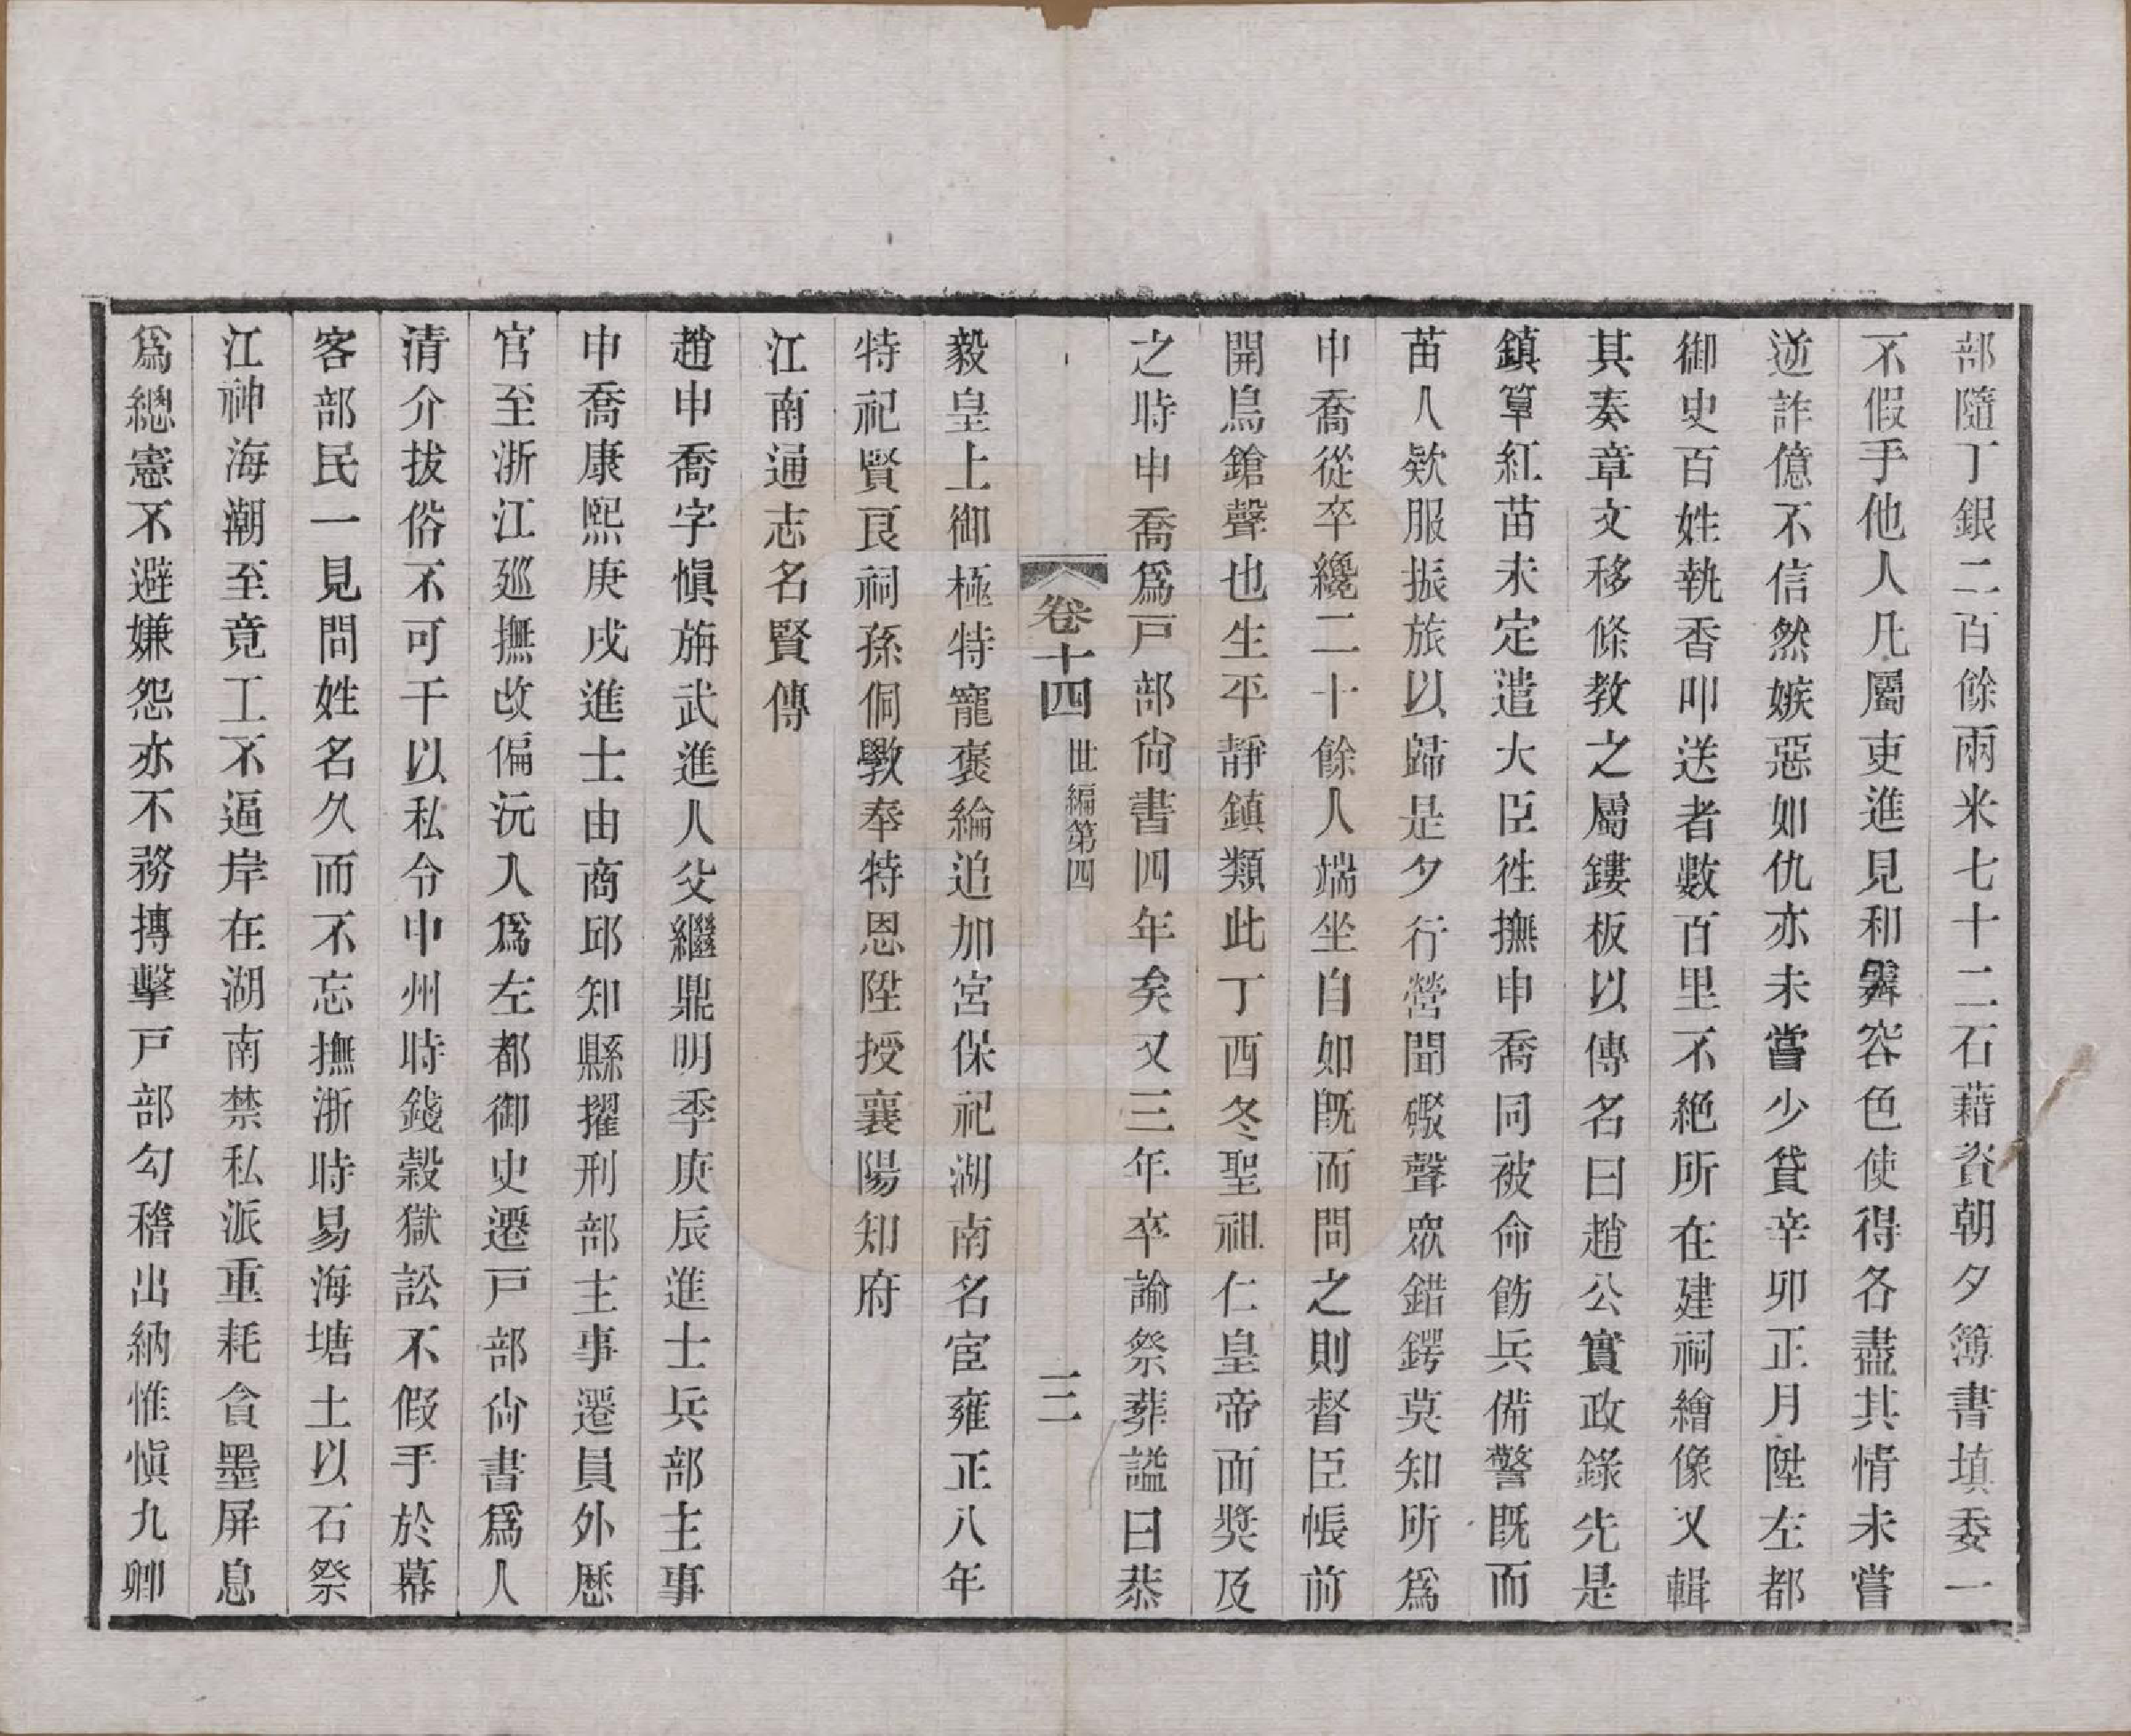 部隨丁銀二百餘兩米七十二石藉資朝夕簿書填委一
不假手他人凡屬吏進見和霽容色使得各盡其情未嘗
逆詐億不信然嫉惡如仇亦未嘗少貸辛卯正月陞左都
御史百姓執香叩送者數百里不絕所在建祠繪像又輯
其奏章文移條教之屬鏤板以傳名曰趙公實政錄先是
鎮筸紅苗未定遣大臣徃撫申喬同被命飭兵備警旣而
苗人欵服振旅以歸是夕行營聞礮聲眾錯鍔莫知所爲
申喬從卒纔二十餘人端坐自如旣而問之則督臣帳前
開鳥鎗聲也生平靜鎮類此丁酉冬聖祖仁皇帝面獎及
之時申喬爲戸部尙書四年矣又三年卒諭祭葬謚曰恭
卷十四 世編第四 三
毅皇上御極特寵褒綸追加宮保祀湖南名宦雍正八年
特祀賢良祠孫侗斆奉特恩陞授襄陽知府
江南通志名賢傳
趙申喬字愼旃武進人父繼鼎明季庚辰進士兵部主事
申喬康熙庚戌進士由商邱知縣擢刑部主事遷員外歷
官至浙江廵撫改偏沅入爲左都御史遷戸部尙書爲人
清介拔俗不可干以私令中州時錢穀獄訟不假手於幕
客部民一見問姓名久而不忘撫浙時易海塘土以石祭
江神海潮至竟工不逼岸在湖南禁私派重耗貪墨屏息
爲總憲不避嫌怨亦不務搏擊戸部勾稽出納惟愼九卿